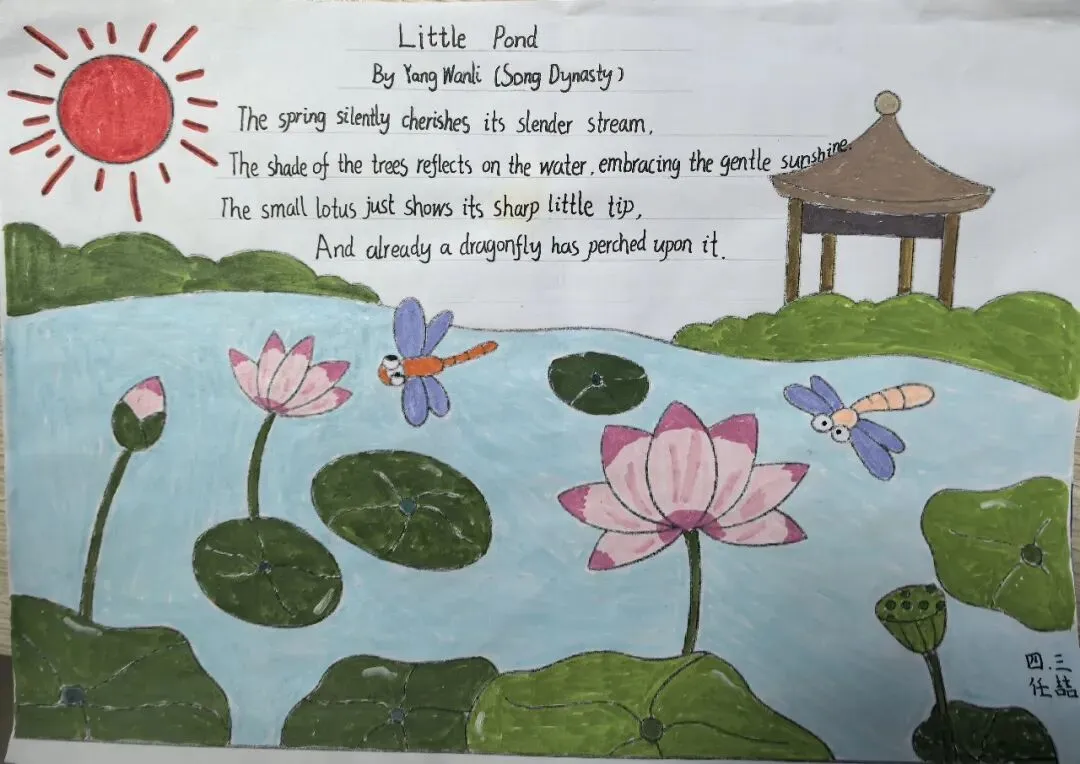 Little Pond
By Yang Wanli (Song Dynasty)
The spring silently cherishes its slender stream,
The shade of the trees reflects on the water, embracing the gentle sunshine.
The small lotus just shows its sharp little tip,
And already a dragonfly has perched upon it.
四.三
任喆